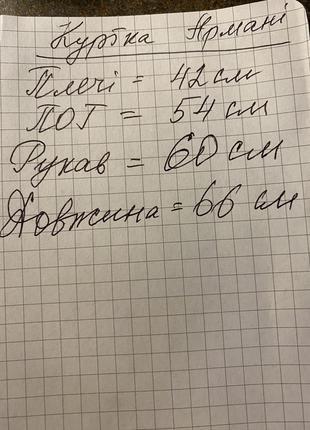 Куртка Армані
Плечі = 42 см
ПОГ = 54 см
Рукав = 60 см
Довжина = 66 см